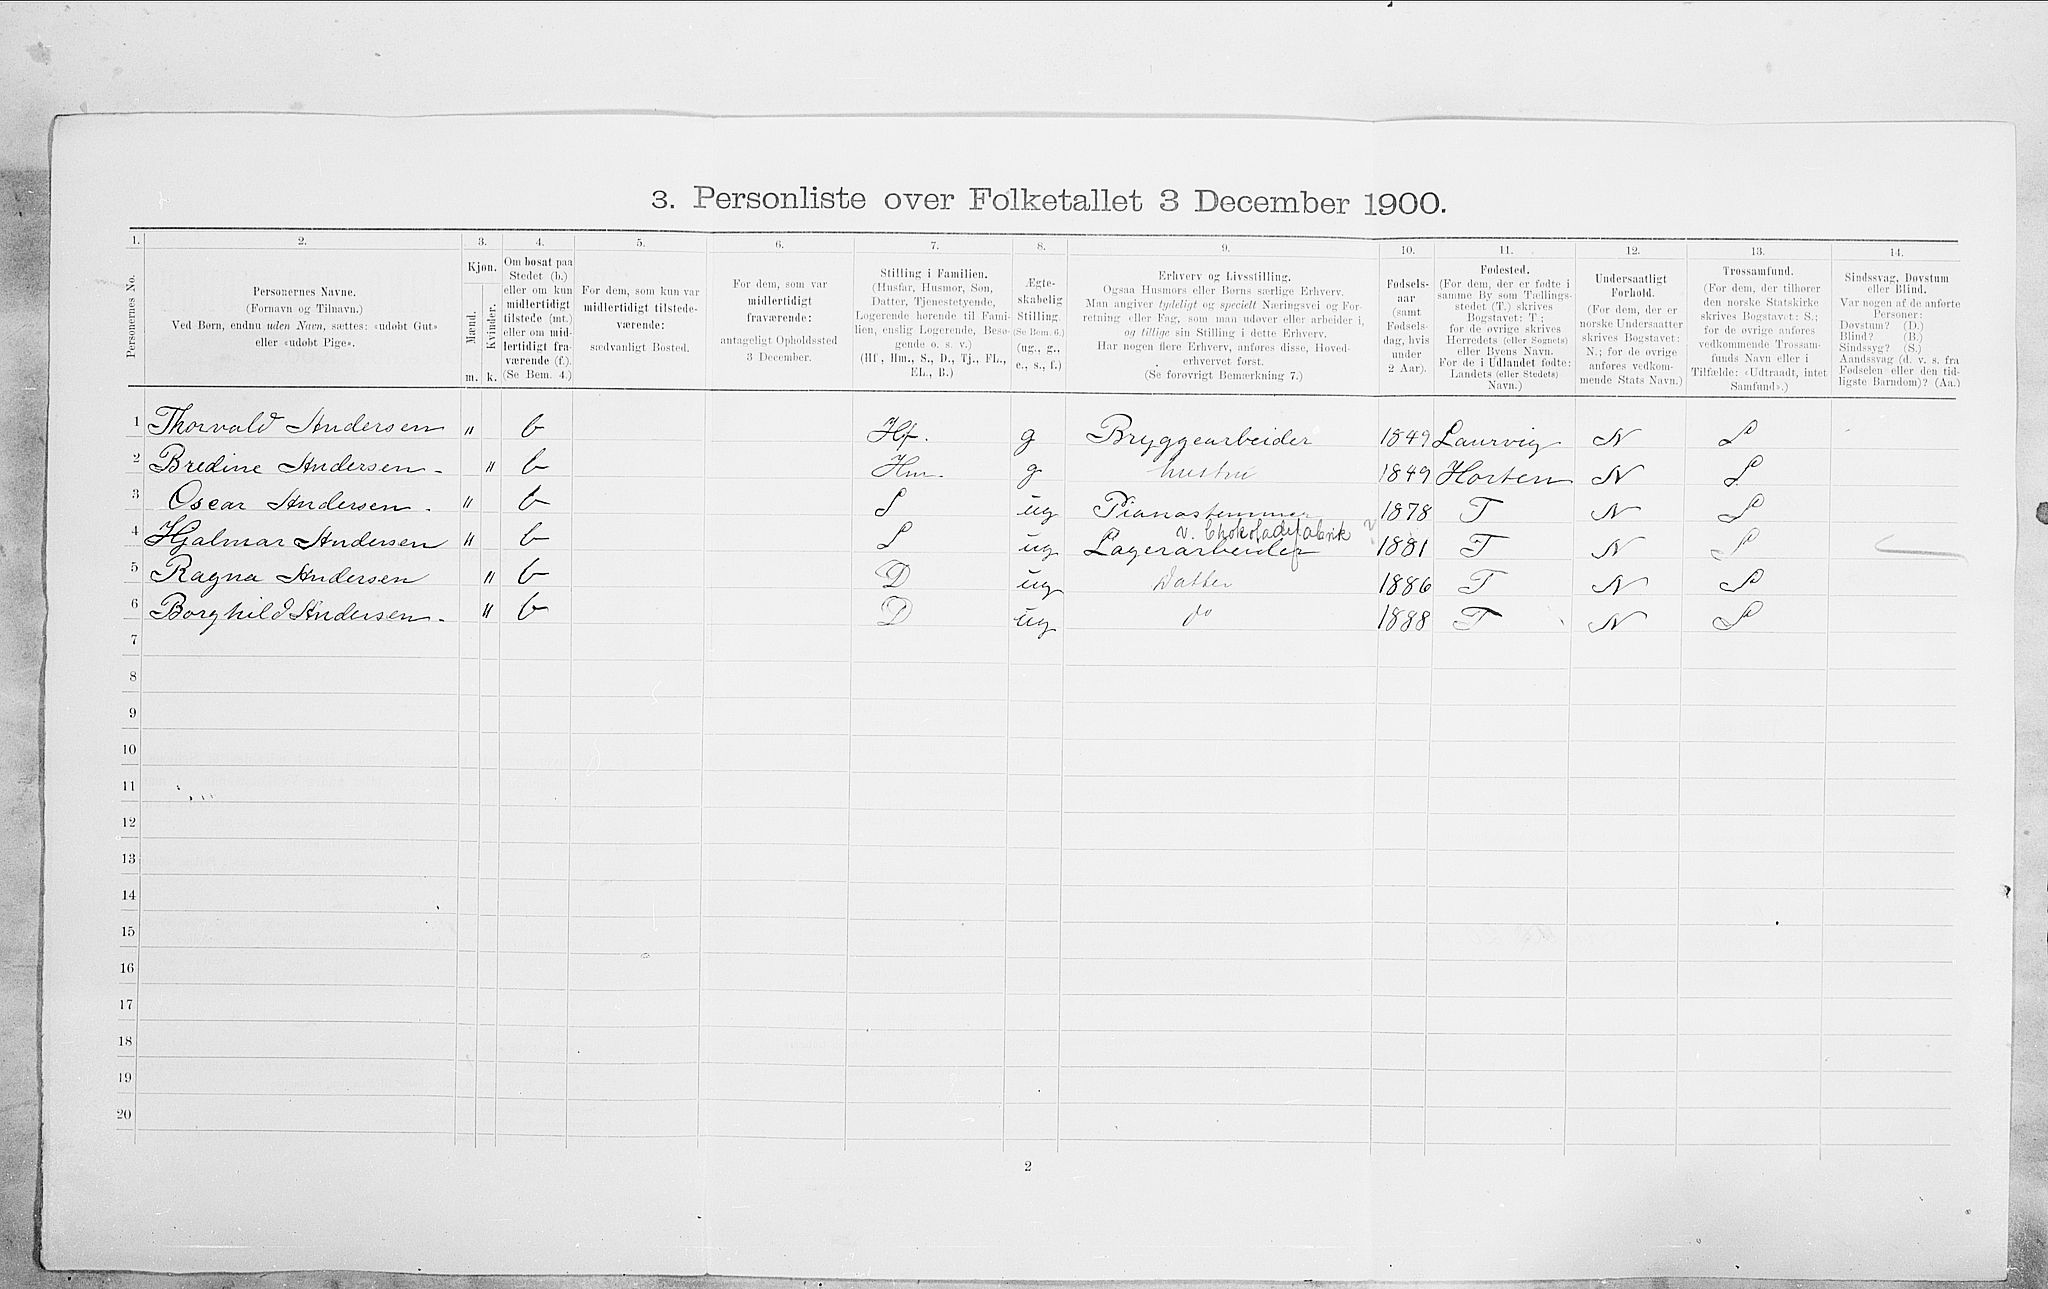 3. Personliste over Folketallet 3 December 1900.
1. 2. 3. 4. 5. 6. 7. 8. 9. 10. 11. 12. 13. 14.
Personernes No.
Personernes Navne.
(Fornavn og Tilnavn.)
Ved Børn, endnu uden Navn, sættes: «udøbt Gut»
eller «udøbt Pige».
Kjøn.
Mænd.
Kvinder.
m. k.
Om bosat paa
Stedet (b.)
eller om kun
midlertidigt
tilstede (mt.)
eller om mid-
lertidigt fra-
værende (f.).
(Se Bem. 4.)
For dem, som kun var
midlertidigt tilstede-
værende:
sædvanligt Bosted.
For dem, som var
midlertidigt
fraværende:
antageligt Opholdssted
3 December.
Stilling i Familien.
(Husfar, Husmor, Søn,
Datter, Tjenestetyende,
Logerende hørende til Fami-
lien, enslig Logerende, Besø-
gende o. s. v.)
(Hf., Hm., S., D., Tj., FL.,
EL., B.)
Ægte-
skabelig
Stilling.
(Se Bem. 6.)
(ug., g.,
e., s., f.)
Erhverv og Livsstilling.
Ogsaa Husmors eller Børns særlige Erhverv.
Man angiver tydeligt og specielt Næringsvei og For-
retning eller Fag, som man udøver eller arbeider i,
og tillige sin Stilling i dette Erhverv.
Har nogen flere Erhverv, anføres disse, Hoved-
erhvervet først.
(Se forøvrigt Bemærkning 7.)
Fødsels-
aar
(samt
Fødsels-
dag, hvis
under
2 Aar).
Fødested.
(For dem, der er fødte i
samme By som Tællings-
stedet (T.) skrives
Bogstavet: T.;
for de øvrige skrives
Herredets (eller Sognets)
eller Byens Navn.
For de i Udlandet fødte:
Landets (eller Stedets)
Navn.)
Undersaatligt
Forhold.
(For dem, der er
norske Undersaatter
skrives Bogstavet:
N.; for de øvrige
anføres vedkom-
mende Stats Navn.)
Trossamfund.
(For dem, der tilhører
den norske Statskirke
skrives Bogstavet: S.;
for de øvrige anføres
vedkommende Trossam-
funds Navn eller i
Tilfælde: «Udtraadt, intet
Samfund».)
Sindssvag, Døvstum
eller Blind.
Var nogen af de anførte
Personer:
Døvstum? (D.)
Blind? (B.)
Sindssyg? (S.)
Aandssvag (d. v. s. fra
Fødselen eller den tid-
ligste Barndom)? (Aa.)
1 Thorvald Andersen " b Hf. g Bryggearbeider 1849 Laurvig N S
2 Bredine Andersen - " b Hm. g hustru 1849 Horten N S
3 Oscar Andersen - " b S ug Pianostemmer 1878 T N S
v. Chokoladefabrik ?
4 Hjalmar Andersen " b S ug Lagerarbeider 1881 T N S
5 Ragna Andersen " b D ug Datter 1886 T N S
6 Borghild Andersen - " b D ug do 1888 T N S
7
8
9
10
11
12
13
14
15
16
17
18
19
20
2